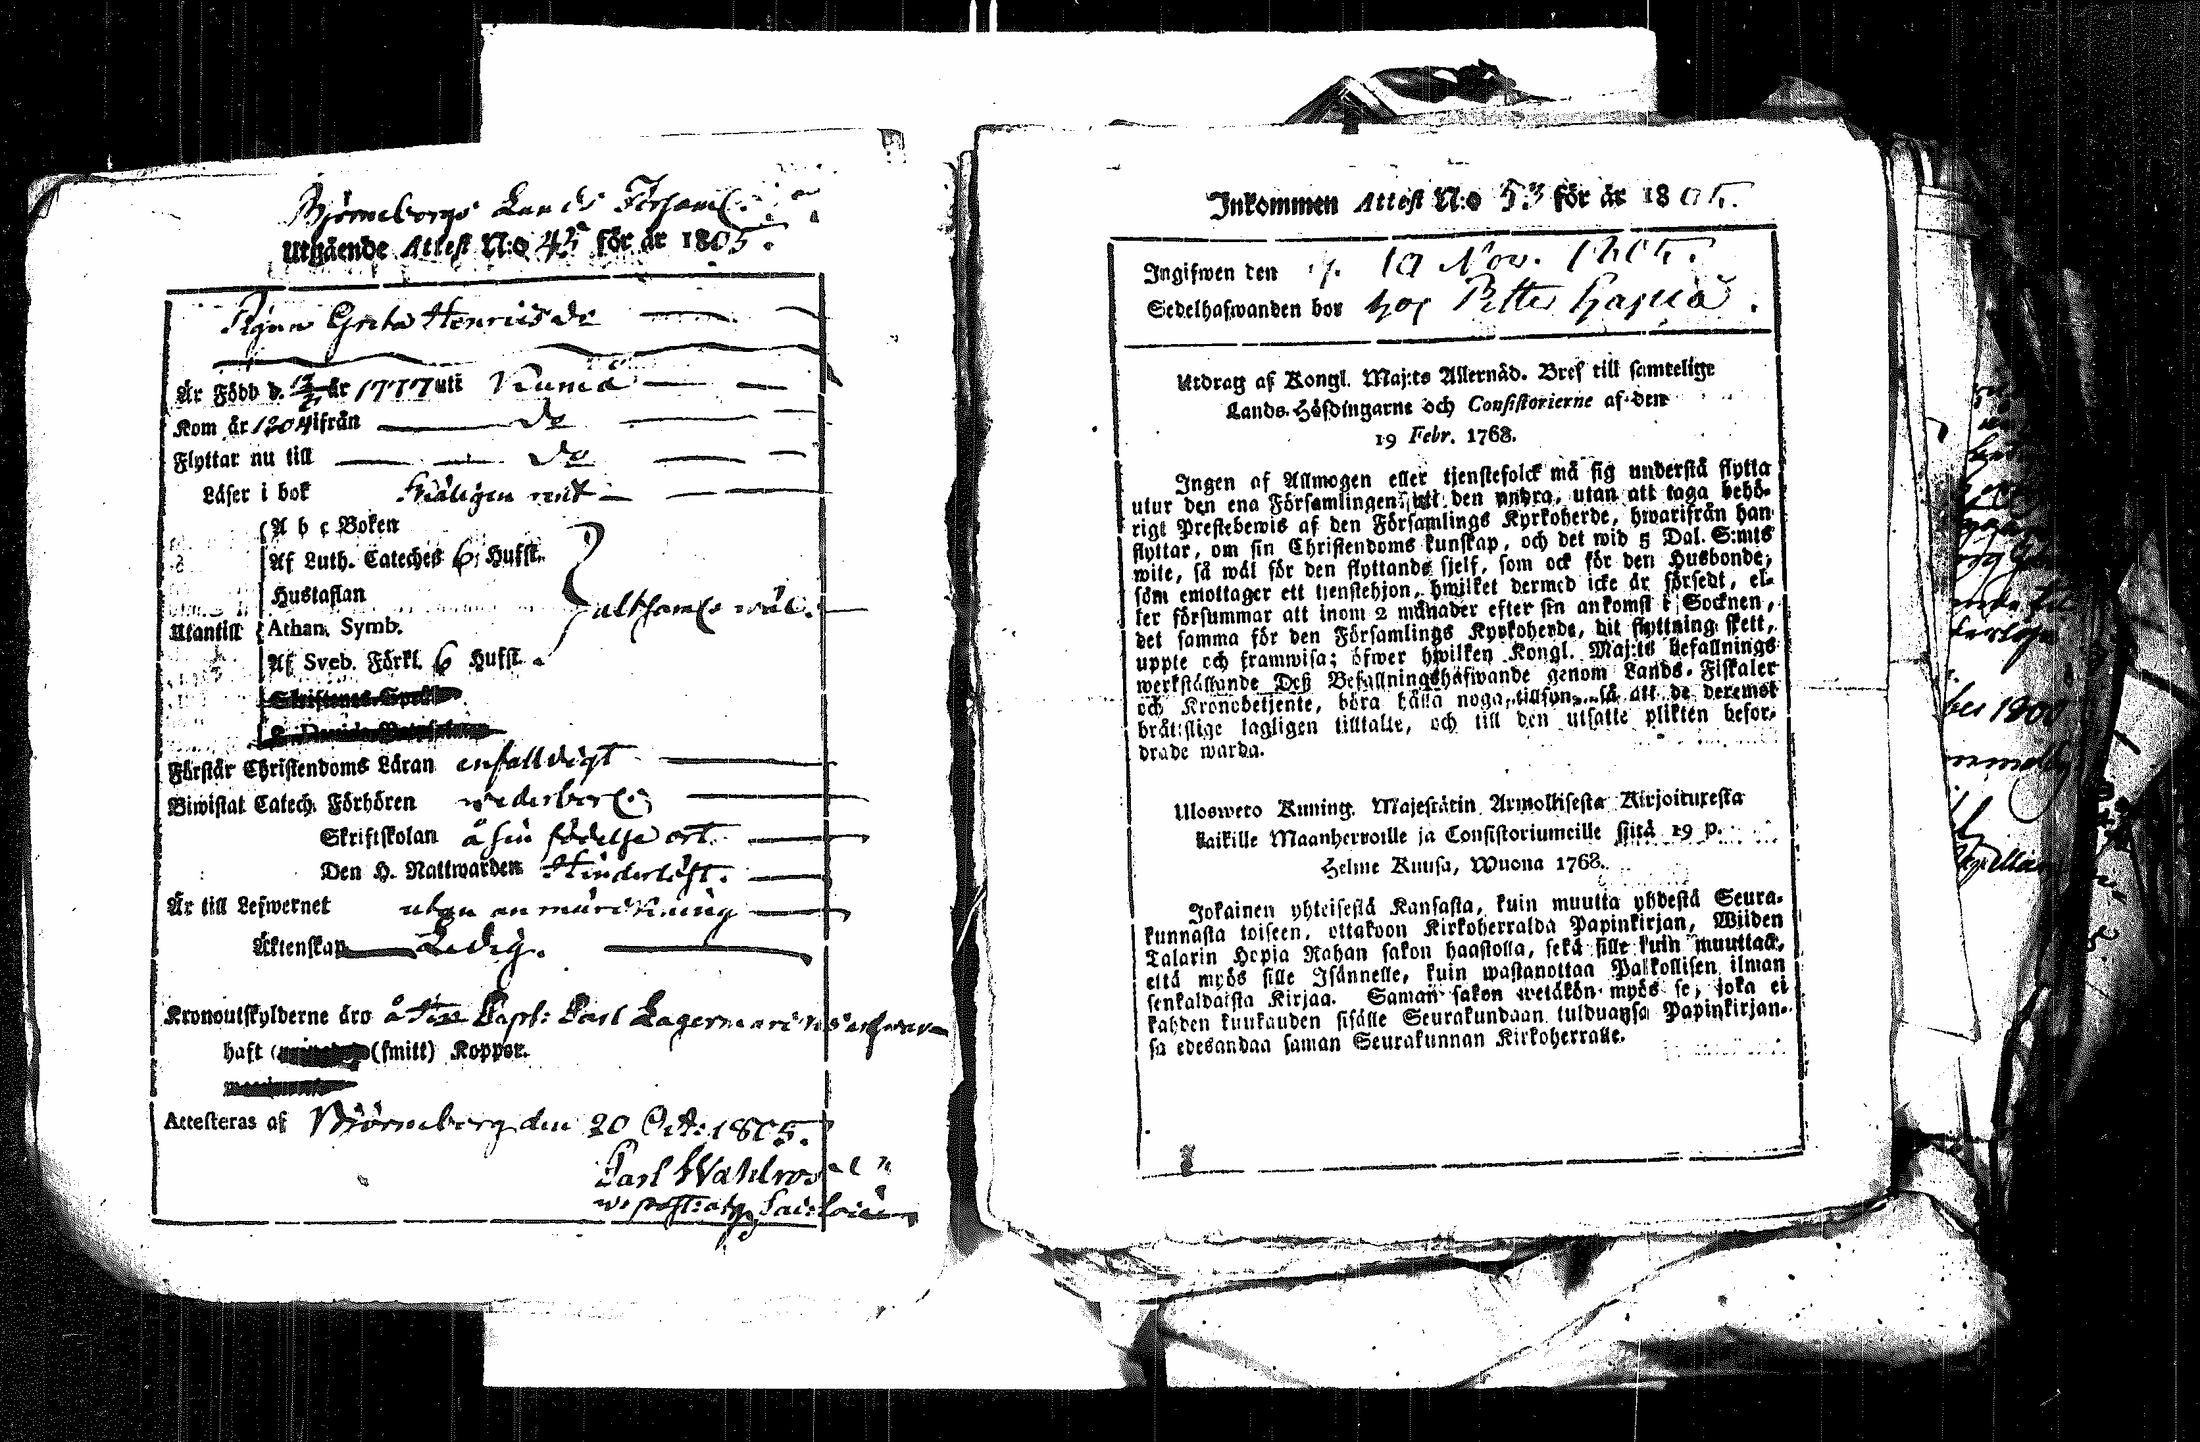 Björneborgs Lands Församl.
Utgående Attest N:o 45 för år 1805.
Pigan Greta Henriksdr
Är Född d. år 1777 uti Kumo
Kom år 1804 ifrån do
Flyttar nu till do
Läser i bok skäligen rent
A b c Boken
Af Luth. Cateches 6 Hufst.
Hustaflan
altsam̄s wäl.
Utantill
Athan. Symb.
Af Sveb. Förkl. 6 Hufst.
Förstår Christendoms Läran enfalldigt
Biwistat Catech. Förhören wederbörl.
Skriftskolan å sin födelse ort.
Den H. Nattwarden Hinderlöst.
Är till Lefwernet utan anmärckning
Äktenskap Ledig.
Kronoutskylderne äro å Capt: Carl Lagermarcks answar
haft (smitt) Koppor.
Attesteras af Björneborg den 20 Oct: 1805.
Carl Wahlroos
Inkommen Attest N:o 53 för år 1805.
Ingifwen den 19 Nov. 1805.
Sedelhafwanden bor hos Petter
Utdrag af Kongl. Maj:ts Allernåd. Bref till samtelige
Lands-Höfdingarne och Consistorierne af den
19 Febr. 1768.
Ingen af Allmogen eller tjenstefolck må sig understå flytta
utur den ena Församlingen, uti den andra, utan att taga behö-
rigt Prestebewis af den Församlings Kyrkoherde, hwarifrån han
flyttar, om sin Christendoms kunskap, och det wid 5 Dal. S:mts
wite, så wäl för den flyttande sjelf, som ock för den Husbonde,
som emottager ett tjenstehjon, hwilket dermed icke är försedt, el-
ler försummar att inom 2 månader efter sin ankomst i Socknen,
det samma för den Församlings Kyrkoherde, dit flyttning skett,
uppte och framwisa; öfwer hwilken Kongl. Maj:ts befallnings
werkställande Deß Befallningshafwande genom Lands-Fiskaler
och Kronobetjente, böra hålla noga tillsyn, så att de deremot
brätslige lagligen tilltalte, och till den utsatte plikten befor-
drade warda.
Ulosweto Kuning. Majestätin Armollisesta Kirjoituxesta
kaikille Maanherroille ja Consistoriumeille siitä 19 p.
Helme Kuusa, Wuona 1768.
Jokainen yhteisestä Kansasta, kuin muutta yhdestä Seura-
kunnasta toiseen, ottakoon Kirkoherralda Papinkirjan, Wiiden
Talarin Hopia Rahan sakon haastolla, sekä sille kuin muuttaa,
että myös sille Isännelle, kuin wastanottaa Palkollisen ilman
senkaldaista Kirjaa. Saman sakon wetäkön myös se, joka ei
kahden kuukauden sisälle Seurakundaan tulduansa Papinkirjan-
sa edesandaa saman Seurakunnan Kirkoherralle.